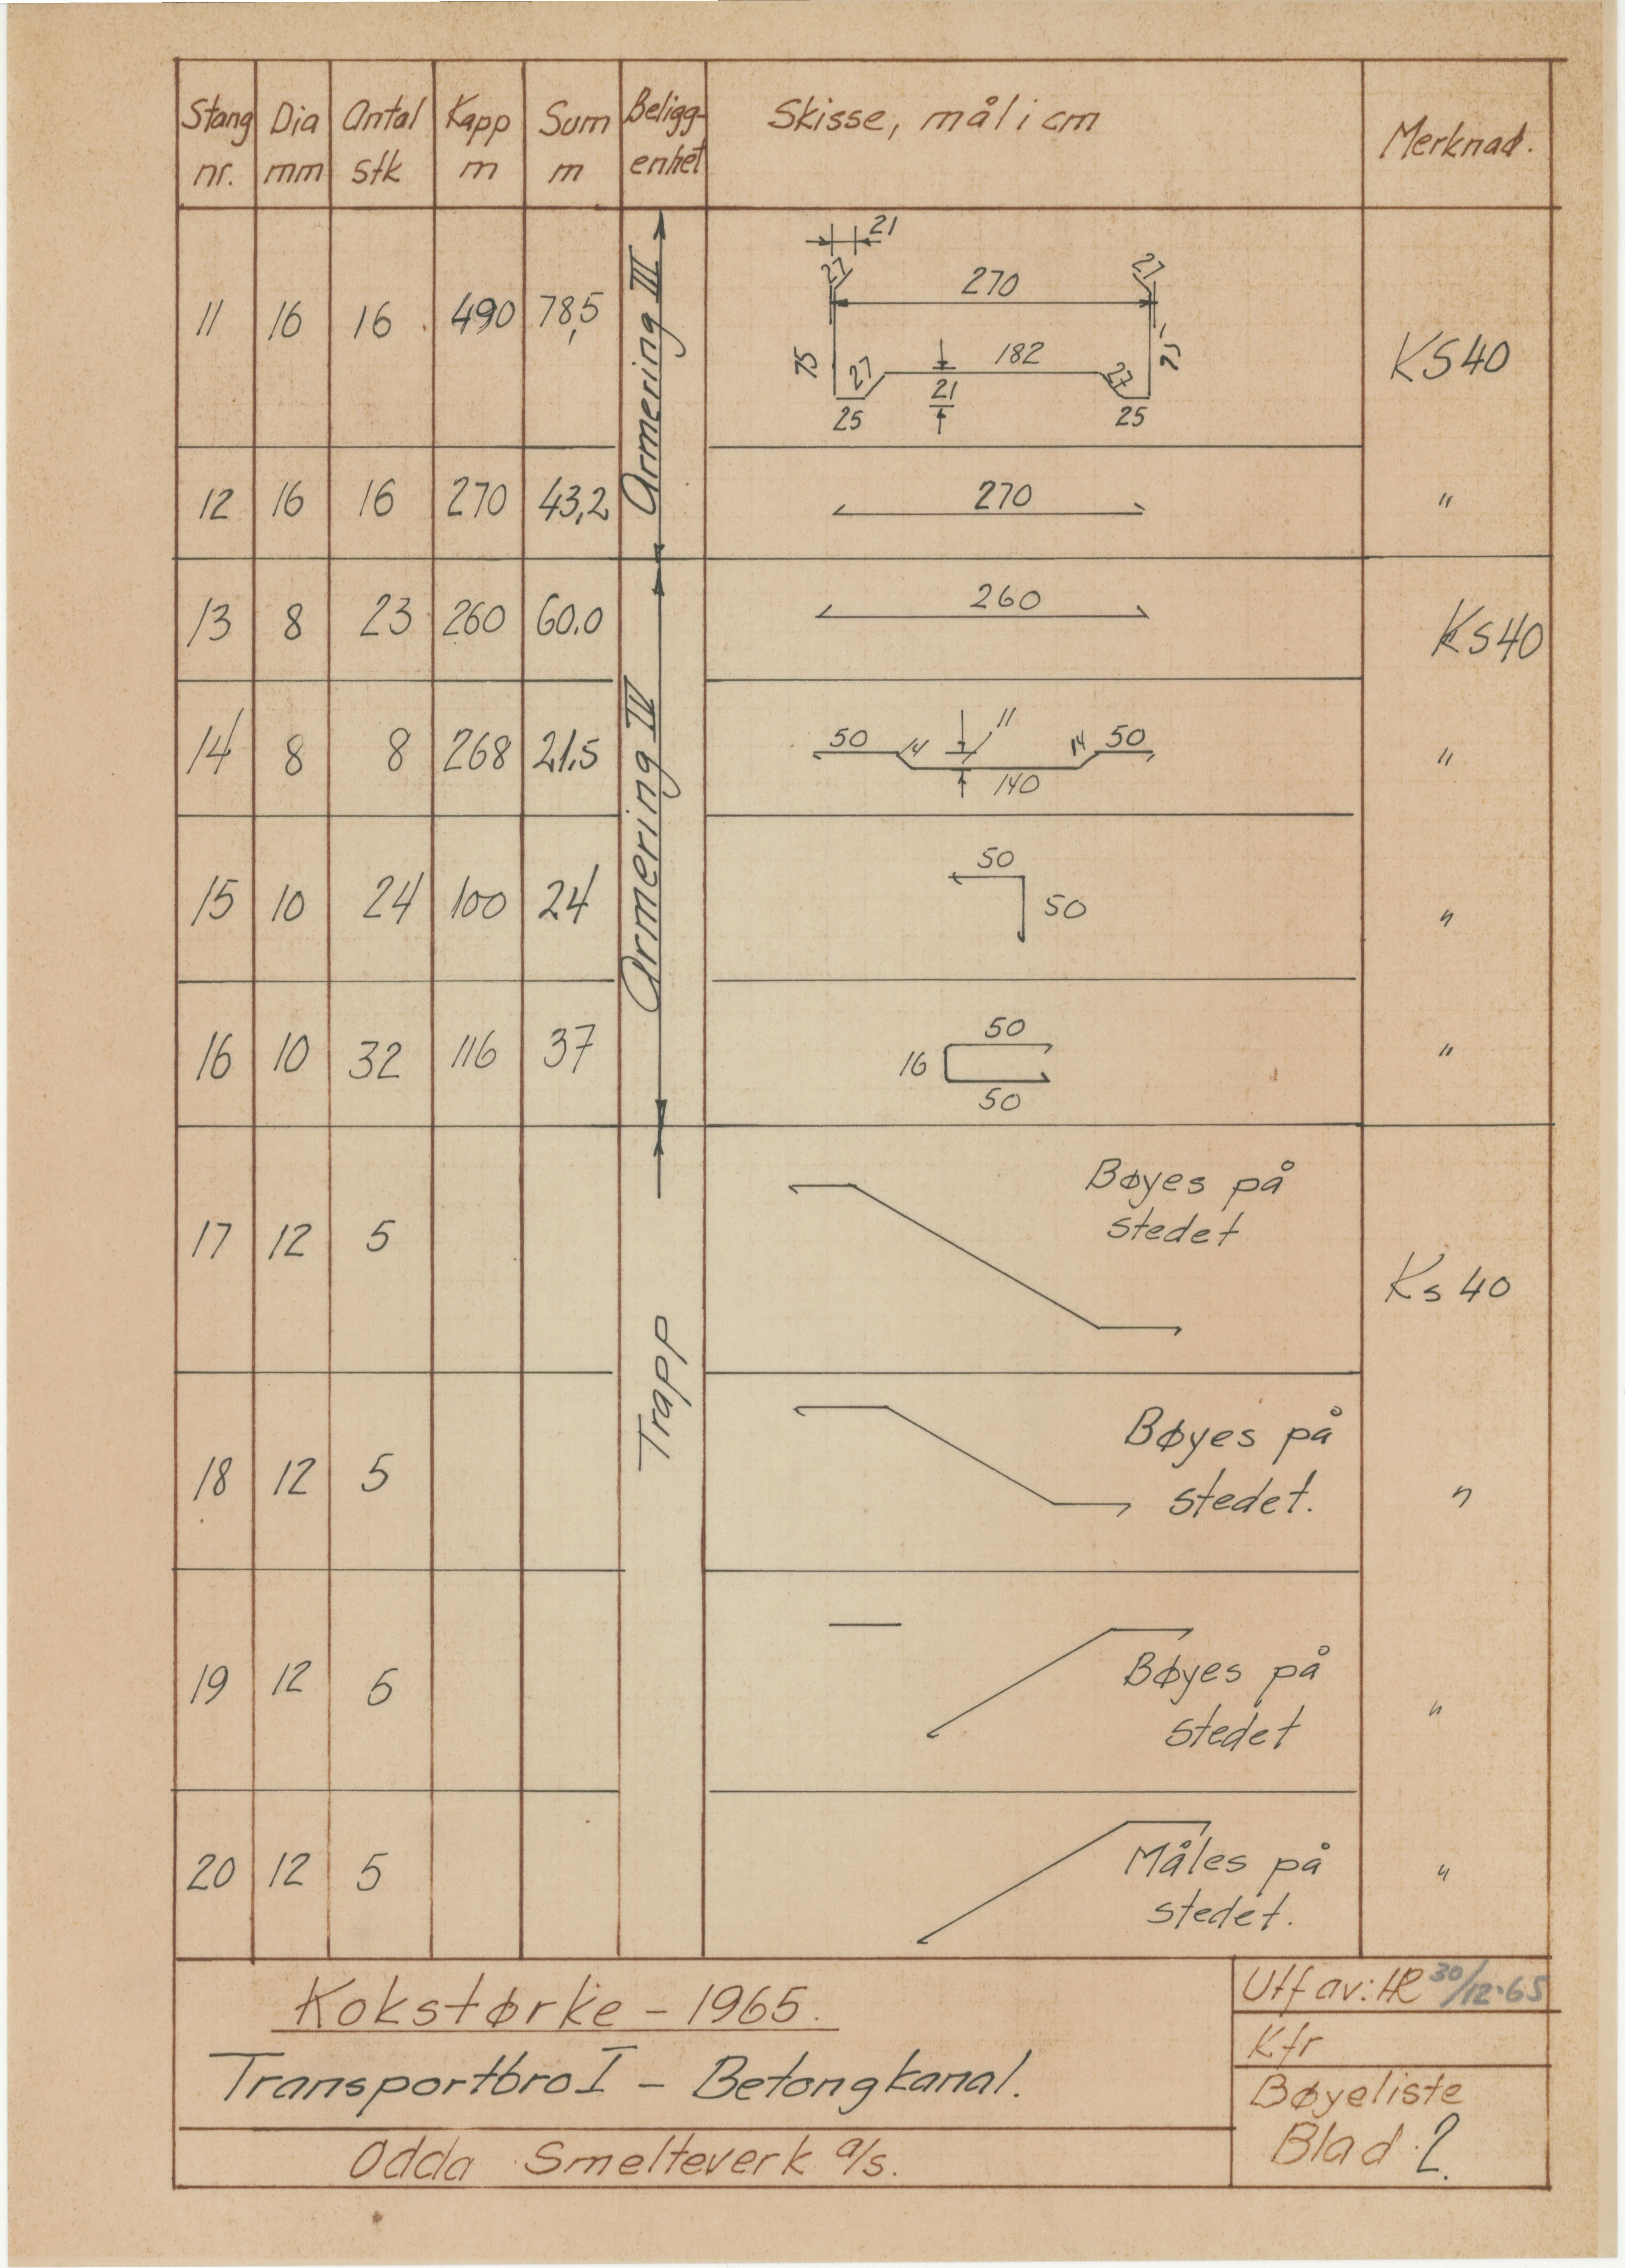 Stang nr. Dia mm Antal stk Kapp m Sum m Beligg-enhet Skisse, mål i cm Merknad.
Armering III
11 16 16 490 78,5 KS40
21
27 27
270
75 27 182 27 75
21
25 25
12 16 16 270 43,2 270 "
Armering IV
13 8 23 260 60.0 260 Ks40
14 8 8 268 21.5 "
50 14 11 14 50
140
15 10 24 100 24 "
50
50
16 10 32 116 37 "
50
16
50
Trapp
17 12 5 Bøyes på
stedet
Ks 40
18 12 5 Bøyes på
stedet.
"
19 12 5 Bøyes på
stedet
"
20 12 5 Måles på
stedet.
"
Kokstørke - 1965.
Transportbro I - Betongkanal.
Odda Smelteverk a/s.
Utf av: HR 30/12-65
Kfr
Bøyeliste
Blad 2.